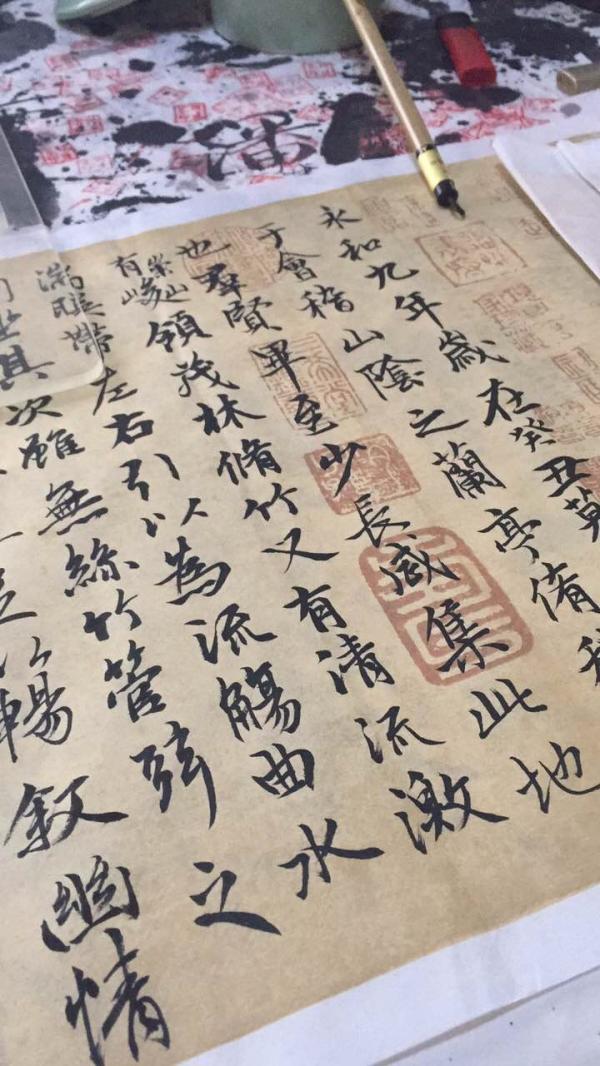 永和九年歲在癸丑莫
于會稽山陰之蘭亭脩
也羣賢畢至少長咸集此地
有崇山峻領茂林脩竹又有清流激
湍暎帶左右引以為流觴曲水
坐其次雖無絲竹管弦之
以暢叙幽情